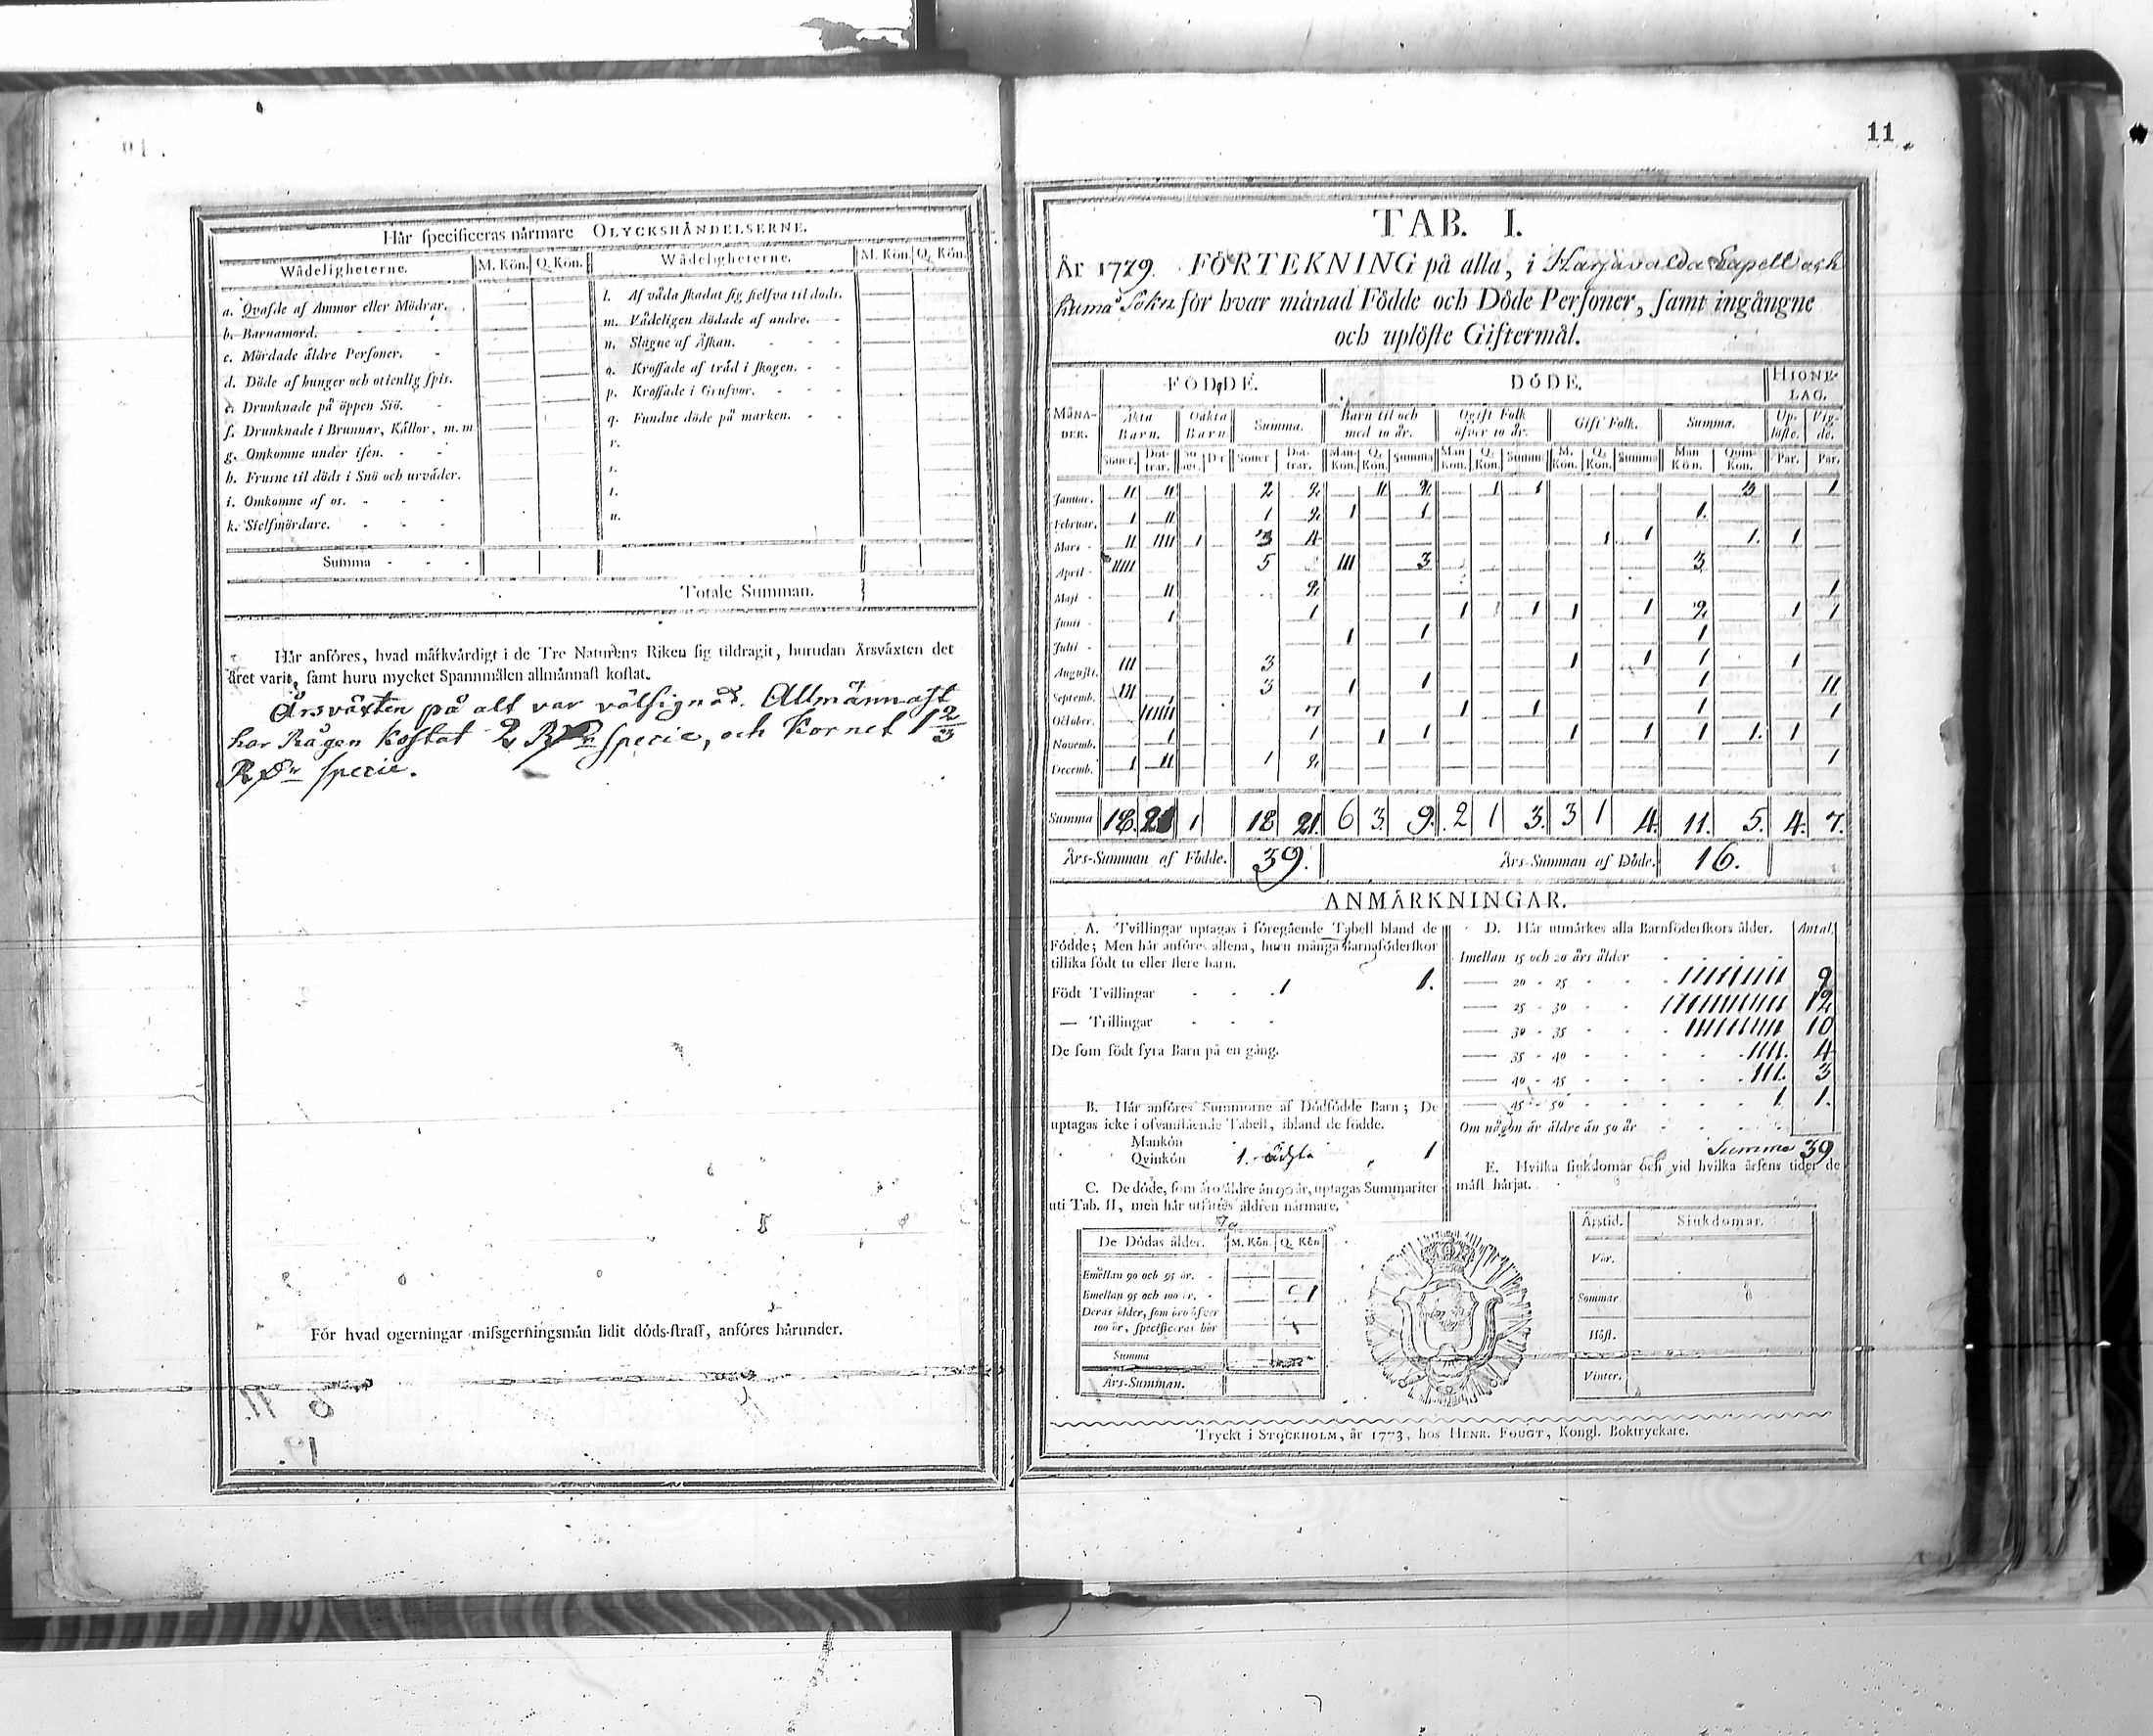 Hår specificeras nårmare OLYCKSHÅNDELSERNE.
Wådeligheterne. M. Kön. Q. Kön. Wådeligheterne. M. Kön. Q. Kön.
a. Qvafde af Ammor eller Mödrar. l. Af våda skadat sig sielfva til döds.
b. Barnamord. m. Vådeligen dödade af andre.
c. Mördade åldre Personer. n. Slagne af Åskan.
d. Döde af hunger och otienlig spis. o. Krossade af tråd i skogen.
e. Drunknade på öppen Siö. p. Krossade i Grufvor.
f. Drunknade i Brunnar, Kållor, m. m. q. Fundne döde på marken.
g. Omkomne under isen. r.
h. Frusne til döds i Snö och urvåder. s.
i. Omkomne af os. t.
k. Sielfmördare. u.
Summa
Totale Summan.
Hår anföres, hvad mårkvårdigt i de Tre Naturens Riken sig tildragit, hurudan Årsvåxten det
året varit, samt huru mycket Spannmålen allmånnast kostat.
Årsväxten på alt var välsignad. Allmännast
har Rågen kostat 2 R specie, och Kornet 1 2/3
specie.
För hvad ogerningar missgerningsmån lidit döds-straff, anföres hårunder.
11
TAB. I.
År 1779. FÖRTEKNING på alla, i Harjavalda Capell och
Kumo Sokn för hvar månad Födde och Döde Personer, samt ingångne
och uplöste Giftermål.
FÖDDE. DÖDE. HIONE-LAG.
MÅNA-DER. Åkta Barn. Oåkta Barn Summa. Barn til och med 10 år. Ogift Folk öfver 10 år. Gift Folk. Summa. Up-löste. Vig-de.
Söner. Döt-trar. Sö-ner. D:r Söner Döt-trar. Man-Kön. Q. Kön. Summa Man Kön. Q. Kön. Summa M. Kön. Q. Kön. Summa Man Kön. Quin-Kön. Par. Par.
Januar. II II 2 2 II 2 1 1 3 1
Februar. 1 II 1 2 1 1 1.
Mars II IIII 1 3 4 1 1 1. 1
April IIIII 5 III 3 3
Maji II 2 1
Junii 1 1 1 1 1 1 2 1 1
Julii 1 1 1
Augusti. III 3 1 1 1 1
Septemb. III 3 1 1 1 II
October. 7 1 1 1 1
Novemb. 1 1 1 1 1 1 1 1. 1
Decemb. 1 II 1 2 1
Summa 18. 21 1 18 21. 6 3 9. 2 1 3. 3 1 4. 11. 5. 4. 7.
Års-Summan af Födde. 39. Års-Summan af Döde. 16.
ANMÅRKNINGAR.
A. Tvillingar uptagas i föregående Tabell bland de
Födde; Men hår anföres allena, huru många Barnaföderskor
tillika födt tu eller flere barn.
Födt Tvillingar 1 1.
— Trillingar
De som födt fyra Barn på en gång.
B. Hår anföres Summorne af Dödfödde Barn; De
uptagas icke i ofvanstående Tabell, ibland de födde.
Mankön
Qvinkön 1. ächta 1
C. De döde, som åro åldre ån 90 år, uptagas Summariter
uti Tab. II, men hår utsåttes åldren nårmare.
De Dödas ålder. M. Kön. Q. Kön
Emellan 90 och 95 år.
Emellan 95 och 100 år. 1
Deras ålder, som åro öfver
100 år, specificeras hår
Summa
Års-Summan.
D. Hår utmårkes alla Barnföderskors ålder. Antal.
Imellan 15 och 20 års ålder
20 - 25 IIIIIIIII 9
25 - 30 IIIIIIIIIIII 12
30 - 35 IIIIIIIIII 10
35 - 40 IIII. 4
40 - 45 III. 3
45 - 50 1. 1.
Om någon år åldre ån 50 år
Summa 39
E. Hvilka siukdomar och vid hvilka årsens tider de
måst hårjat.
Årstid. Siukdomar.
Vår.
Sommar
Höst.
Vinter.
Tryckt i STOCKHOLM, år 1773, hos HENR. FOUGT, Kongl. Boktryckare.